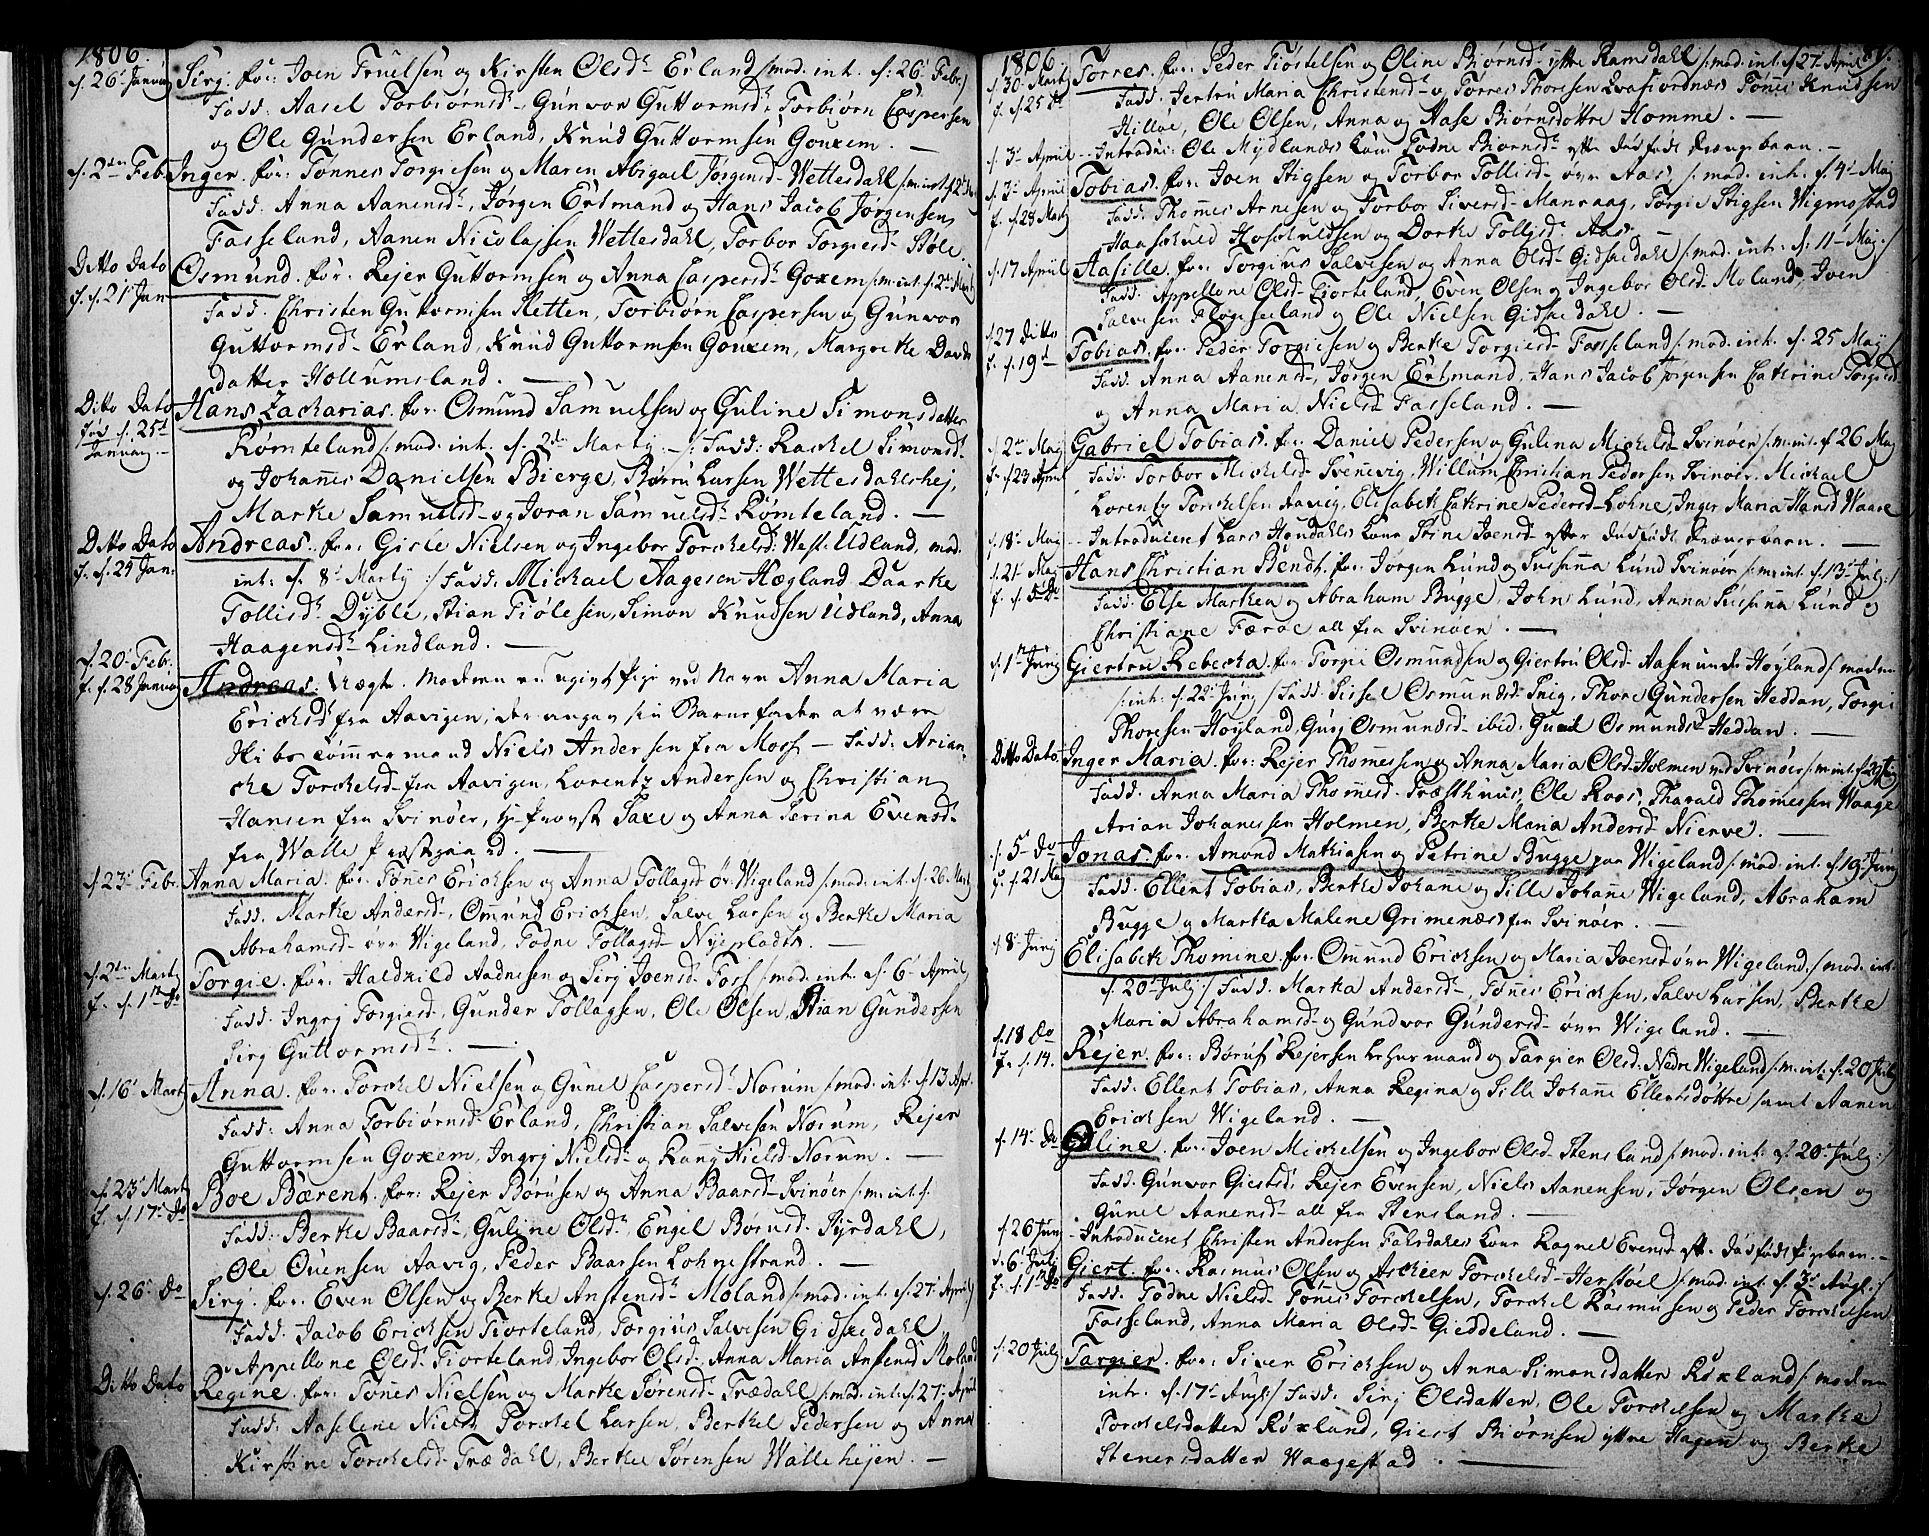 1806
d. 26 Januarij Sirj. for: Joen Truelsen og Kirsten Olsd. Erland /: mod. int. d: 26 Febr:/
Fadd: Aasel Torbiørnsd. Gunvor Guttormsd. Torbiørn Caspersen
og Ole Gundersen Erland, Knud Guttormsen Goxem. —
d. 2den Feb. Inger. for: Tønnes Torgiesen og Maren Abigael Jørgensd. Wettesdahl /: m: int:
Fadd: Anna Aanensd., Jørgen Ertzmand og Hans Jacob Jørgensen
Fasseland, Aanen Nicolajsen Wettesdahl, Torbor Torgiesd. Bole.
Ditto Dato Osmund. for: Rejer Guttormsen og Anna Caspersd. Goxem /: m: int:
f. d. 21 Jan. Fadd: Christen Guttormsen Retten, Torbiørn Caspersen og Gunvor
Guttormsd. Erland, Knud Guttormsen Goxem, Margrethe Davids
datter Hollumsland. —
Ditto Dato Hans Zacharias. for: Osmund Samuelsen og Guline Simonsdatter
d. 25de Januarij Rømteland /: mod: int: d. 2den Martij :/ Fadd: Rachel Simonsd.
og Johannes Danielsen Bierge, Børru Larsen Wettesdahlshej,
Marthe Samuelsd. og Joran Samuelsd. Rømteland. —
Ditto Dato Andreas. for: Gisle Nielsen og Ingebor Torchelsd. West: Udland, mod.
int: d. 8 Martij :/ Fadd: Michael Aagesen Hægland, Daarthe
Tollisd. Dyble, Stian Tiølesen, Simon Knudsen Udland, Anna
Haagensd. Lindland. —
d. 20 Feb. f. d. 28 Januarij Andreas. Uægte. Moderen en ugivt Pige ved Navn Anna Maria
Ericksd. fra Aavigen, der angav sin Barnefader at være
Skibstømmermand Niels Andersen fra Moss — Fadd: Arian-
che Torchelsd. fra Aavigen, Lorentz Andersen og Christian
Hansen fra Svinøer, Hr Provst Saxe og Anna Serina Evensd.
fra Walle Præstgaard. —
d. 23 Febr. Anna Maria. for: Tønnes Ericksen og Anna Tollagsd. øv: Wigeland /: mod: int: d. 26 Martij
Fadd: Marthe Andersd., Omund Ericksen, Salve Larsen og Berthe Maria
Abrahamsd. øvr Wigeland, Todne Tollagsd. Nyepladts. —
d. 2den Martij Torgie. for: Haldkild Aadnesen og Sirj Joensd. Foss /: mod: int: d. 6 April
f. d. 1ste Do Fadd: Ingrj Torgiesd., Gunder Tollagsen, Ole Olsen, Stian Gundersen
Sirj Guttormsd. —
d. 16 Martij Anna. for: Torchel Nielsen og Gunel Caspersd. Norum /: mod: int: d. 13 Apr.
Fadd: Anna Torbiørnsd. Erland, Christian Salvesen Norum, Rejer
Guttormsen Goxem, Ingrj Nielsd. og Rannj Nielsd. Norum. —
d. 23 Martij Boe Bærent. for: Rejer Børusen og Anna Baarsd. Svinøer /: m: int: d.
f. d. 17 Do Fadd: Berthe Baarsd., Guline Olsd., Engel Børusd. Syrdahl,
Ole Evensen Aavig, Peder Baarsen Lohnestrand. —
d. 26 Do Sirj. for: Even Olsen og Berthe Anstensd. Moland /: mod: int: d. 27 April:/
Fadd: Jacob Ericksen Tiorteland, Torgius Salvesen Gidskedahl
Appellone Olsd. Tiorteland, Ingebor Olsd., Anna Maria Anstensd. Moland
Ditto Dato Regine. for: Tønnes Nielsen og Marthe Sørensd. Trædahl /: mod: int: d. 27 April
Fadd: Aaselene Nielsd., Torchel Larsen, Berthel Pedersen og Anna
Kirstine Torchelsd. Trædahl, Berthe Sørensen Wallehejen. —
1806
d. 30 Martij Torres. for: Peder Tiostelsen og Oline Biørnsd. yttre Ramsdahl /: mod: int: d. 27 April
f. d. 25 do Fadd: Jertru Maria Christensd. og Torres Thoresen Qvafiordnæs Tønnes Knudsen
Hilløe, Ole Olsen, Anna og Aase Biørnsdøttre Homme. —
d. 3 April — Introduc: Ole Mydlands Kone Todne Biørnsd. efter dødfødt Drængebarn. —
d. 3 April Tobias. for: Joen Stigsen og Torbor Tollisd. øvr Aas, /: mod: int: d. 4 Maj
f. d. 28 Martij Fadd: Thomes Arnesen og Torbor Siversd. Manraag, Torgis Stigsen Wigmostad
Haaskuld Hoskuldsen og Dorthe Tollisd. Aas. —
d. 17 April Aasille. for: Torgius Salvesen og Anna Olsd. Gidskedahl /: mod: int: d. 11 Maj:/
Fadd: Appellone Olsd. Tiorteland, Even Olsen og Ingebor Olsd. Moland, Joen
Salvesen Fløgseland og Ole Nielsen Gidskedahl. —
d. 27 Ditto Tobias. for: Peder Torgiesen og Berthe Torgiesd. Fasseland /: mod: int: d. 25 Maj:/
f. d. 19d Fadd: Anna Aanensd., Jørgen Ertzmand, Hans Jacob Jørgensen Cathrine Torgiesd.
og Anna Maria Nielsd. Fasseland. —
d. 2 Maj Gabriel Tobias. for: Daniel Pedersen og Gulina Michelsd. Svinøer /: m: int: d. 26 Maj
f. d. 23 April Fadd: Torbor Michelsd. Svennevig, Willum Christian Pedersen Svinøer, Michael
Lorentz Torchelsen Aavig, Elisabeth Cathrine Pedersd. Lohne, Inger Maria Hansd. Waage
d. 18 Maj — Introduceret Lars Høndahls Kone Stine Joensd. efter dødfødt Drængebarn. —
d. 21 Maj Hans Christian Bendt. for: Jørgen Lund og Susanna Lund Svinøer /: m: int: d. 13 Julj:/
f. d. 5 Do Fadd: Else Marthea og Abraham Bugge, John Lund, Anna Susanna Lund og
Christiane Færøe all fra Svinøer. —
d. 1ste Junj Giertru Rebecka. for: Torgie Osmundsen og Giertru Olsd. Aasen under Høyland /: moderen
/: int: d. 22 Junj :/ Fadd: Sissel Osmundsd. Snig, Thore Gundersen Heddan, Torgie
Thoresen Høyland, Gurj Osmundsd. ibid. Gunil Osmundsd. Heddan. —
Ditto Dato. Inger Maria. for: Rejer Thomessen og Anna Maria Olsd. Holmen ved Svinøer /: m: int: d. 29 Junj
Fadd: Anna Maria Thomesd. Træsthuus, Ole Roos, Tharald Thomessen Waage
Arian Johanessen Holmen, Berthe Maria Andersd. Nierve. —
d. 5 Do Jonas. for: Amond Mathiasen og Petrine Bugge paa Wigeland /: mod: int: d. 19 Junj
f. d. 21 Maj Fadd: Ellert Tobias, Berthe Johane og Sille Johane Wigeland, Abraham
Bugge og Martha Malene Grimenæs fra Svinøer. —
d. 8 Junj Elisabeth Thomine. for: Omund Ericksen og Maria Joensd. øvr Wigeland /: mod: int:
d. 20 Julj :/ Fadd: Martha Andersd., Tønnes Ericksen, Salve Larsen, Berthe
Maria Abrahamsd. og Gundvor Gundersd. øvr Wigeland. —
d. 18 Do Rejer. for: Børuf Rejersen Lehnsmand og Targier Olsd. Nedre Wigeland /: m: int: d. 20 Julj
f. d. 14. Fadd: Ellert Tobias, Anna Regina og Sille Johane Ellertsdøttre samt Aanen
Ericksen Wigeland. —
d. 14 Do Guline. for: Joen Michelsen og Ingebor Olsd. Stensland /: mod: int: d. 20 Julj:/
Fadd: Gunvor Giertsd., Rejer Evensen, Niels Aanensen, Jørgen Olsen og
Gunel Aanensd. all fra Stensland. —
d. 26 Junj — Introduceret Christen Andersen Fahrdahls Kone Ragnel Evensd. eft. dødfødt Pigebarn. —
d. 6 Julj Giert. for: Rasmus Olsen og Ascheer Torchelsd. Herstøel /: mod: int: d. 3 Aug:/
f. d. 1ste Do Fadd: Todne Nielsd. Tønnes Torchelsen, Torchel Rasmusen og Peder Torchelsen
Fasseland, Anna Maria Olsd. Gieddeland. —
d. 20 Julj Targier. for: Siver Ericksen og Anna Simonsdatter Røxland /: moderen
int: d. 17 Aug:/ Fadd: Sirj Olsdatter, Ole Torchelsen og Marthe
Torchelsdatter Røxland, Giert Biørnsen yttre Hagen og Berthe
Stenersdatter Haagestad. —